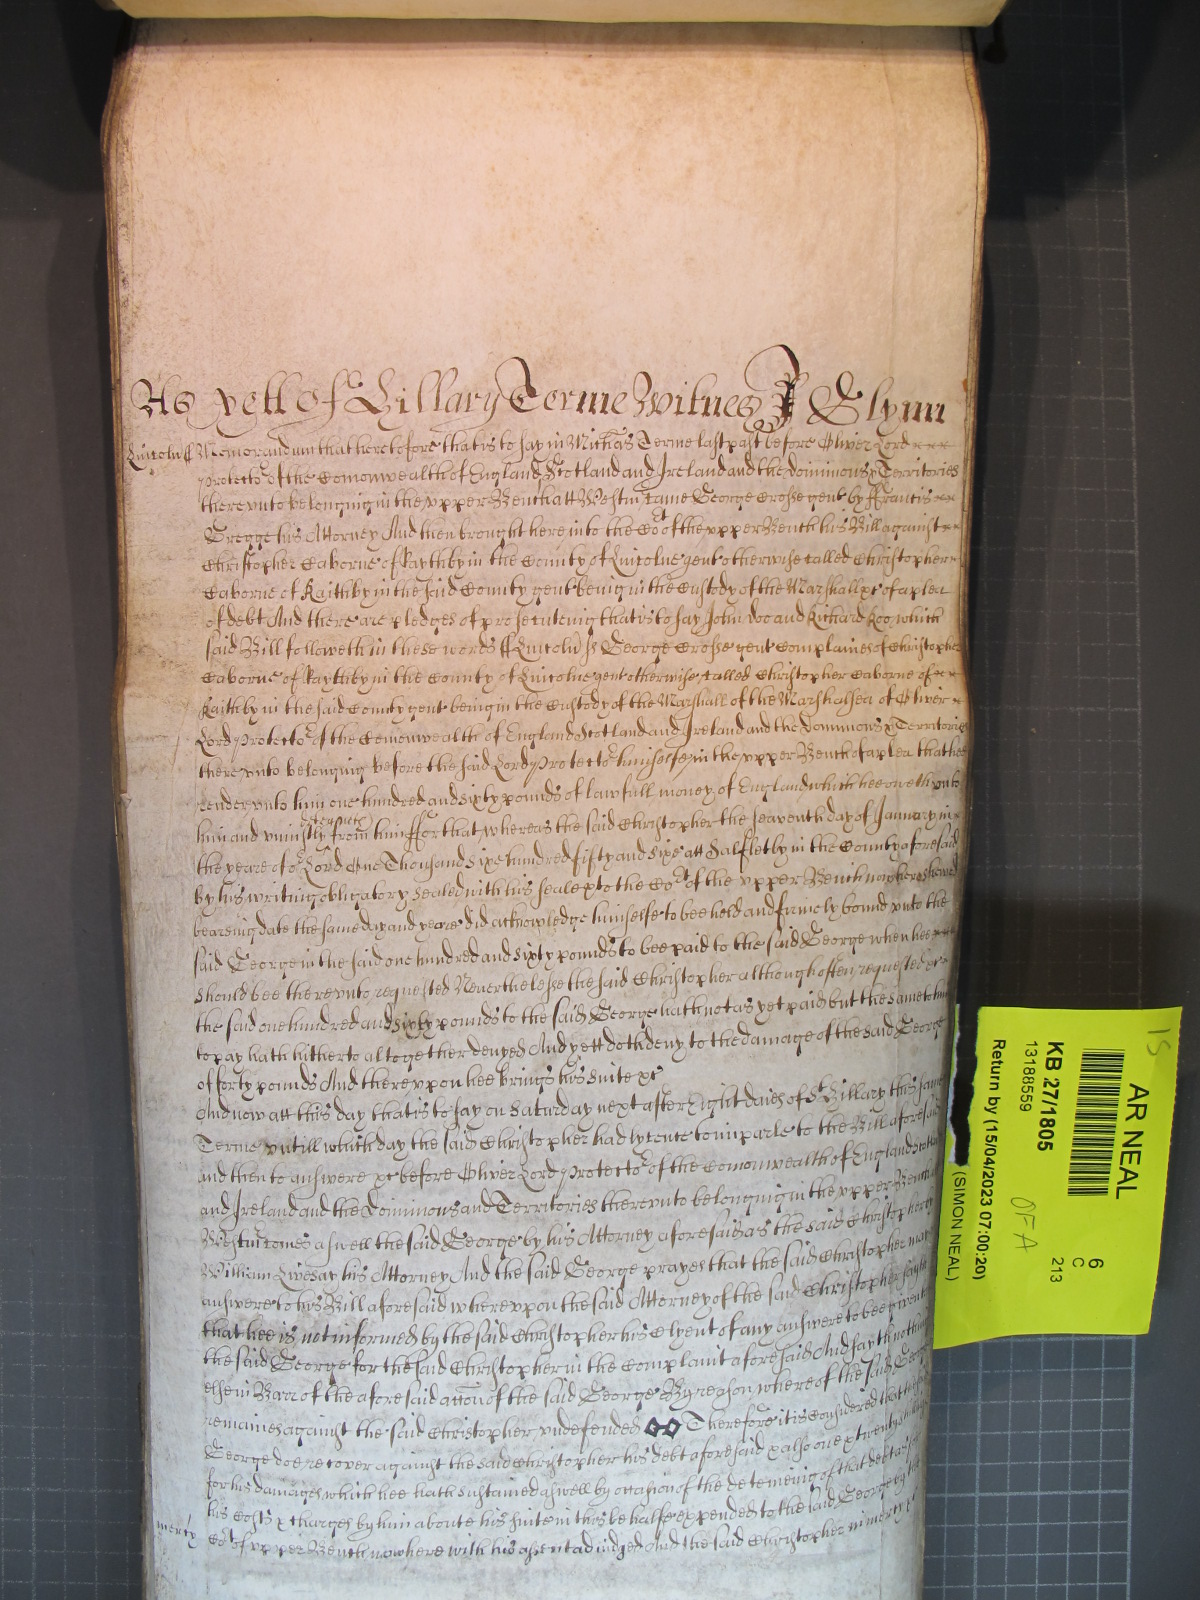 As yett Of Hillary Terme Witnes J Glynn
Lincoln ff Memorandum that heretofore that is to say in Michās Terme last past before Oliver Lord
Protector of the Comonwealth of England Scotland and Ireland and the Dominions & Territories
therevnto belonging in the vpper Bench att Westm̄ came George Crosse gent by ffrancis
Gregge his Attorney And then brought here into the Cot of the vpper Bench his Bill against
Christopher Caborne of Raythby in the County of Lincolne gent otherwise called Christopher
Caborne of Raithby in the said County gent being in the Custody of the Marshall &c of a plea
of debt And there are pledges of prosecuteing that is to say John Doo and Richard Roo which
said Bill followeth in these words ff Lincoln ss George Crosse gent Complaines of Christopher
Caborne of Raythby in the County of Lincolne gent otherwise called Christopher Caborne of
Raithby in the said County gent being in the Custody of the Marshall of the Marshalsea of Oliver
Lord Protector of the Comonwealth of England Scotland and Ireland and the Dominions & Territories
therevnto belonging before the said Lord Protector himselfe in the vpper Bench of a plea that hee
render vnto him one hundred and sixty pounds of lawfull money of England which hee oweth vnto
him and vniustly deteyneth from him ffor that whereas the said Christopher the seaventh day of January in
the yeare of or Lord One Thousand sixe hundred fifty and sixe att Salfletby in the County aforesaid
by his writing obligatory sealed with his seale & to the Cot of the vpper Bench now here shewed
beareing date the same day and yeare did acknowledge himselfe to bee held and firmely bound vnto the
said George in the said one hundred and sixty pounds to bee paid to the said George when hee
should bee therevnto requested Neverthelesse the said Christopher although often requested &c
the said one hundred and sixty pounds to the said George hath not as yet paid but the same to him
to pay hath hitherto altogether denyed And yett doth deny to the damage of the said George
of forty pounds And therevpon hee brings his suite &c
And now att this day that is to say on Saturday next after Eight daies of St Hillary this same
Terme vntill which day the said Christopher had lycence to imparle to the Bill aforesaid
and then to answere &c before Oliver Lord Protector of the Comonwealth of England Scotland
and Ireland and the Dominions and Territories therevnto belonging in the vpper Bench
Westm̄ comes aswell the said George by his Attorney aforesaid as the said Christopher by
William Livesay his Attorney And the said George prayes that the said Christopher may
answere to his Bill aforesaid wherevpon the said Attorney of the said Christopher sayth
that hee is not informed by the said Christopher his Clyent of any answere to bee given to
the said George for the said Christopher in the Complaint aforesaid And sayth nothing
else in Barr of the aforesaid accōn of the said George By reason whereof the said George
remaines against the said Christopher vndefended Therefore it is Considered that the said
George doe recover against the said Christopher his debt aforesaid & also one & twenty shillings
for his damages which hee hath sustained aswell by occasion of the deteineing of that debt as for
his Costs & charges by him aboute his suite in this behalfe expended to the said George by the
Cot of vpper Bench now here with his assent adiudged And the said Christopher in mercy &c
mercy
15
AR NEAL
KB 27/1805
13188559
OFA
6
C
213
Return by (15/04/2023 07:00:20)
(SIMON NEAL)